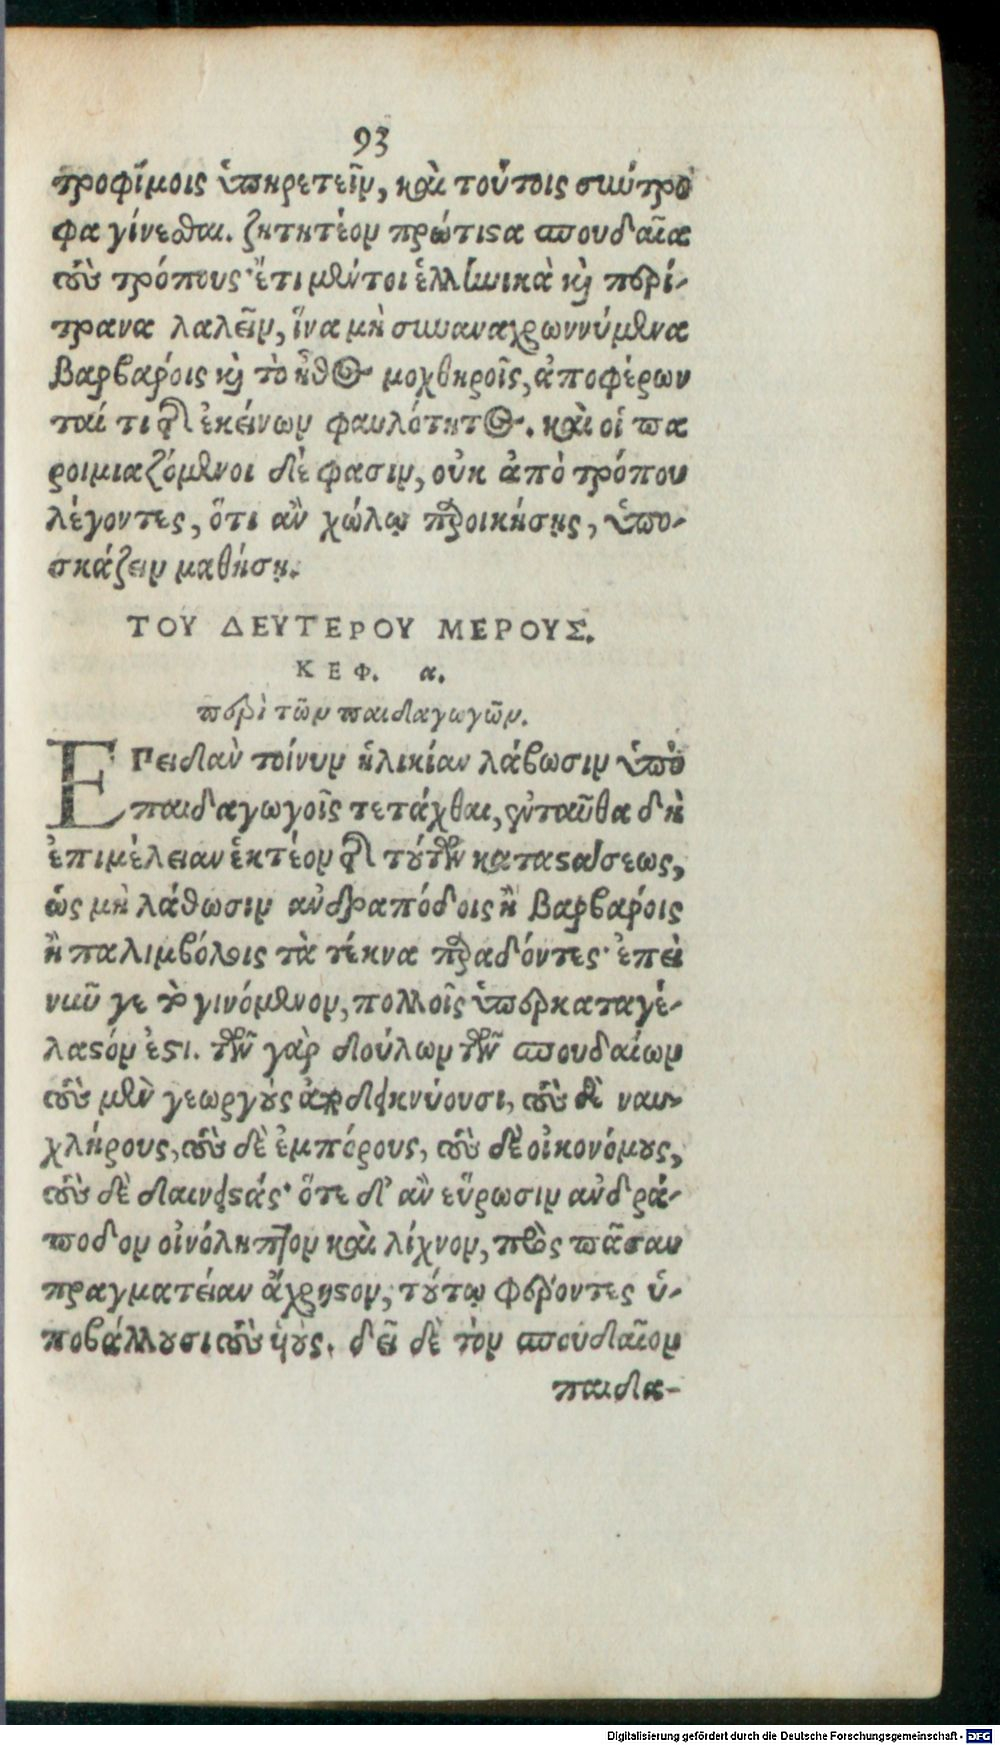 93
τροφίμοις ὑπηρετεῖν, καὶ τούτοις σύντρο
φα γίνεσθαι. ζητητέον πρώτιστα σπουδαῖα
τοὺς τρόπους· ἔτι μέντοι ἑλληνικὰ καὶ περί-
τρανα λαλεῖν, ἵνα μὴ συναναχρωννύμενα
βαρβάροις καὶ τὸ ἦθος μοχθηροῖς, ἀποφέρων
ταί τι τῆς ἐκείνων φαυλότητος. καὶ οἱ πα
ροιμιαζόμενοι δέ φασιν, οὐκ ἀπὸ τρόπου
λέγοντες, ὅτι ἂν χώλῳ παροικήσῃς, ὑπο-
σκάζειν μαθήσῃ.
ΤΟΥ ΔΕΥΤΕΡΟΥ ΜΕΡΟΥΣ.
ΚΕΦ. α.
περὶ τῶν παιδαγωγῶν.
ΕΠειδὰν τοίνυν ἡλικίαν λάβωσιν ὑπὸ
παιδαγωγοῖς τετάχθαι, ἐνταῦθα δὴ
ἐπιμέλειαν ἑκτέον τῆς τούτων καταστάσεως,
ὡς μὴ λάθωσιν ἀνδραπόδοις ἢ βαρβάροις
ἢ παλιμβόλοις τὰ τέκνα παραδόντες· ἐπεὶ
νῦν γε τὸ γινόμενον, πολλοῖς ὑπερκαταγέ-
λαστόν ἐστι. τῶν γὰρ δούλων τῶν σπουδαίων
τοὺς μὲν γεωργοὺς ἀποδεικνύουσι, τοὺς δὲ ναυ-
χλήρους, τοὺς δὲ ἐμπόρους, τοὺς δὲ οἰκονόμους,
τοὺς δὲ δανειστάς· ὅτε δ' ἂν εὕρωσιν ἀνδρά-
ποδον οἰνόληπτον καὶ λίχνον, πρὸς πᾶσαν
πραγματείαν ἄχρηστον, τούτῳ φέροντες ὑ-
ποβάλλουσι τοὺς υἱούς. δεῖ δὲ τὸν σπουδαῖον
παιδα-
Digitalisierung gefördert durch die Deutsche Forschungsgemeinschaft - DFG